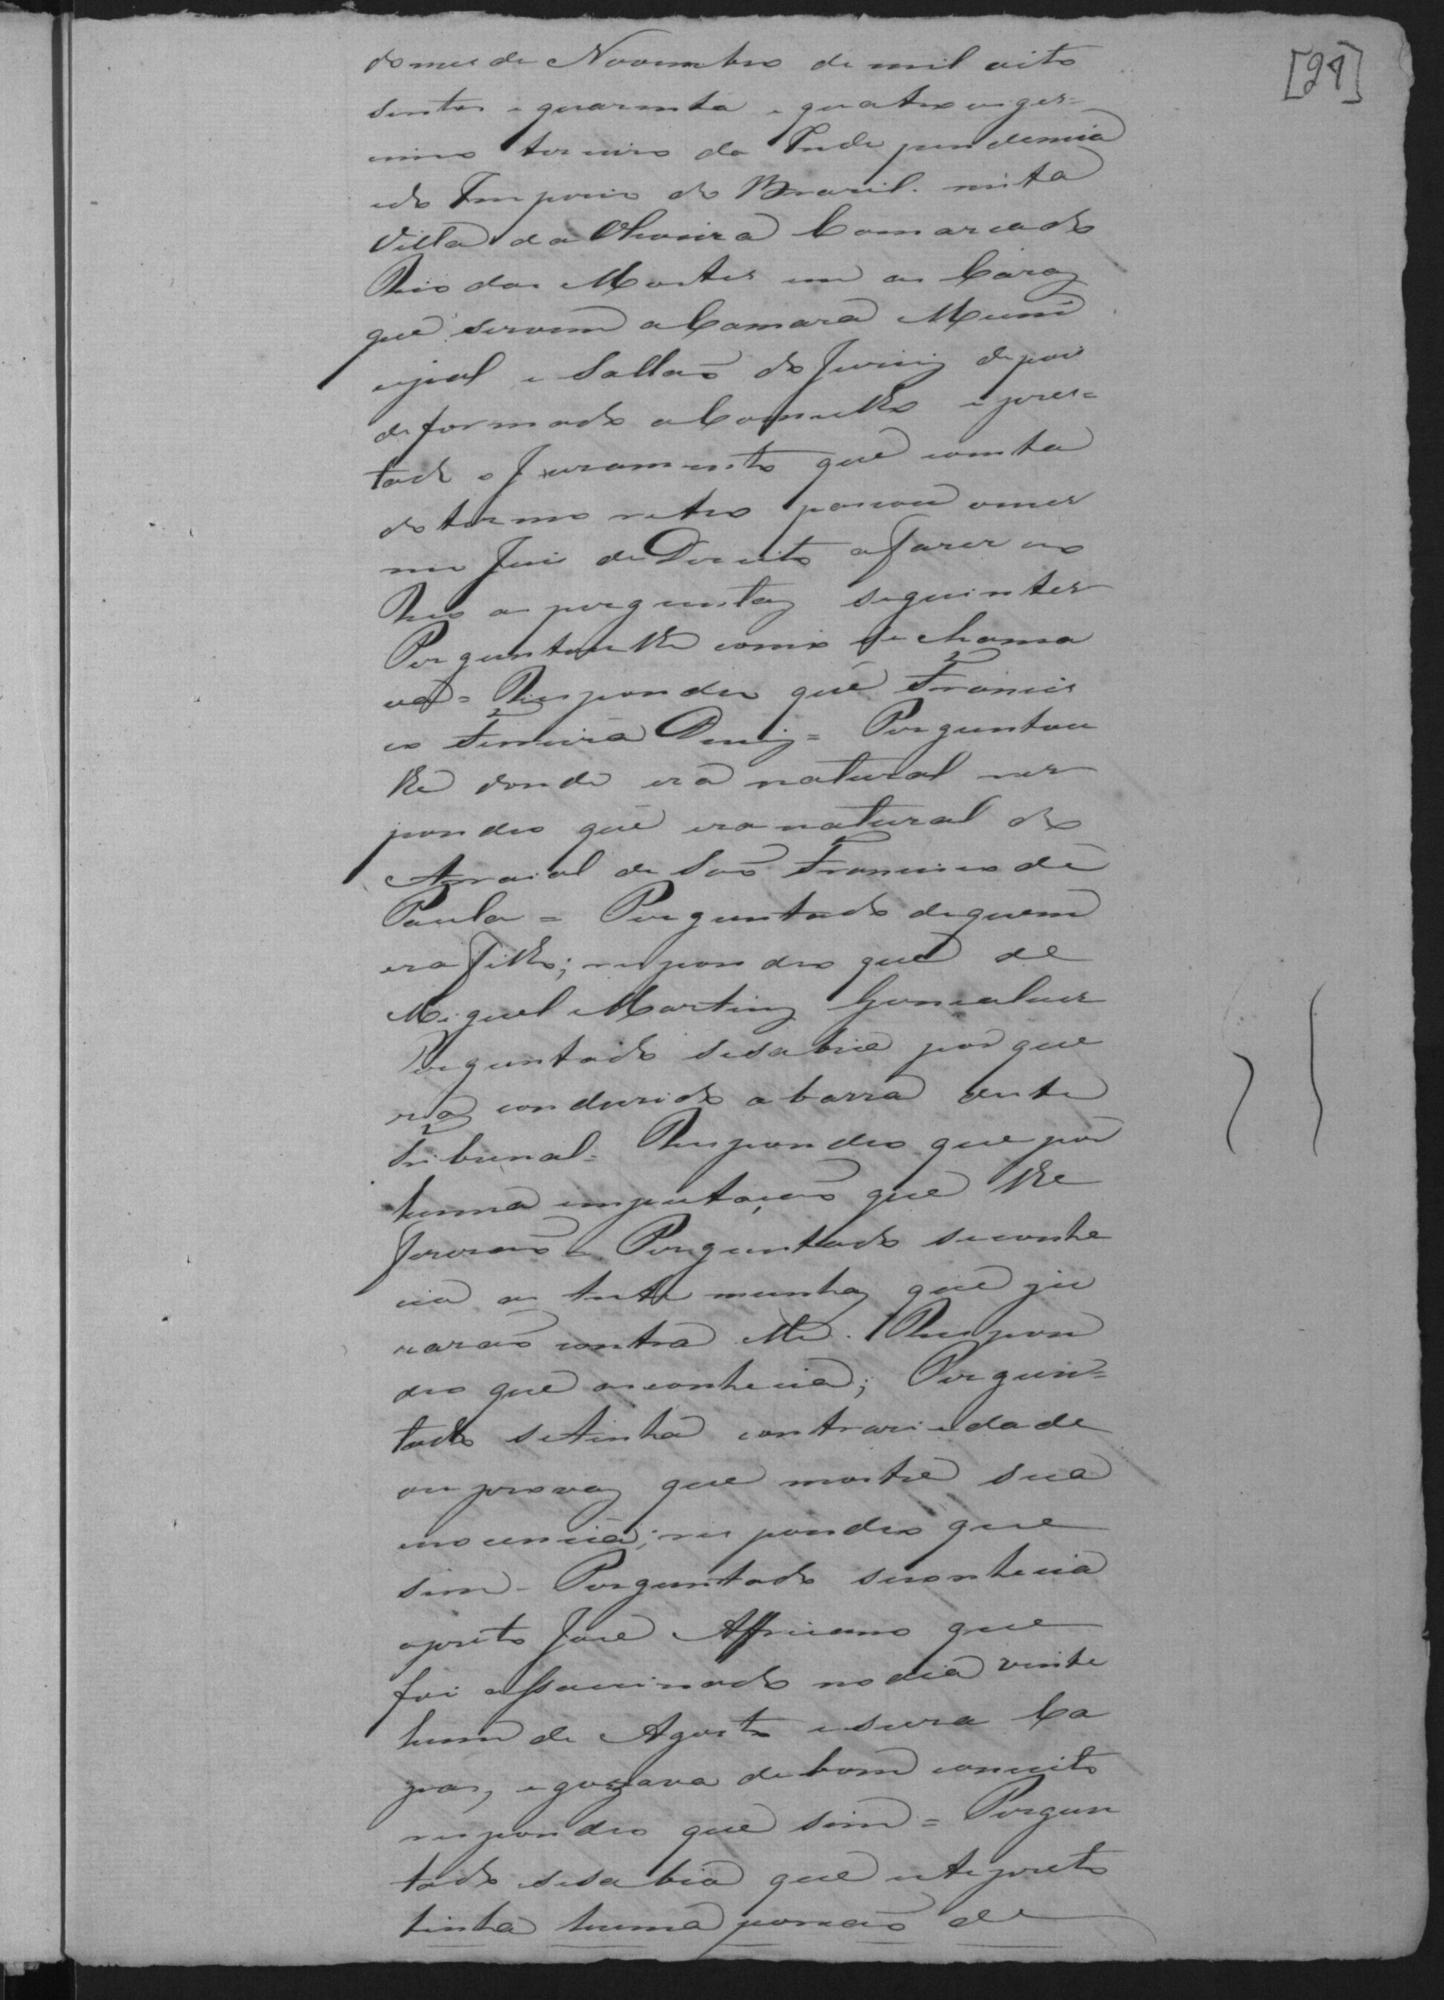 [21]
do mes de Novembro de mil oito
sentos e quarenta e quatro viges=
simo terceiro da Independencia
e do Imperio do Brasil. nésta
Villa da Oliveira Comarca do
Rio das Mortes em as Cazas
que servem a Camara Muni
cipal e Sallaõ do Jurÿ depois
de formado o Conselho e pres=
tado o Juramento que consta
do termo retro passou o mes
mo Juis de Direito a fazer ao
Reo as perguntas seguintes
Perguntoulhe como se chama
va = Respondeo que Francis
co Ferreira Diniz = Perguntou
lhe donde era natural res
pondeo que era natural do
Arraial de Saõ Francisco de
Paula = Perguntado de quem
era filho; respondeo que de
Miguel Martins Gonsalves
Perguntado se sabia por que
era conduzido a barra deste
Tribunal = Respondeo que por
huma imputaçaõ que lhe
fizeraõ = Perguntado se conhe
cia as testemunhas que ju
raraõ contra elle. Respon
deo que as conhecia; Pergun=
tado se tinha contrariedade
ou provas que mostre sua
inocencia; respondeo que
sim = Perguntado se conhecia
o preto José Affricano que
foi assassinado no dia vinte
hum de Agosto e se era Ca
pas, e gozava de bom conceito
respondeo que sim = Pergun
tado se sabia que este preto
tinha huma porcaõ de